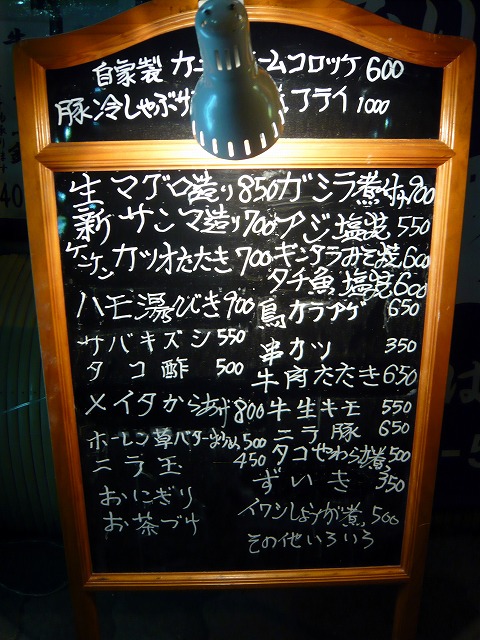 自家製 カニ ームコロッケ 600
豚冷しゃぶサ フライ 1000
生マグロ造り 850
新サンマ造り 700
ケンケンカツオたたき 700
ハモ湯びき 900
サバキズシ 550
タコ酢 500
メイタからあげ 800
ホーレン草バター炒め 500
ニラ玉 450
おにぎり
お茶づけ
ガシラ煮付 900
アジ塩焼 550
ギンタラみそ焼 600
タチ魚塩焼 600
鳥カラアゲ 650
串カツ 350
牛肉たたき 650
牛生キモ 550
ニラ豚 650
タコやわらか煮 500
ずいき 350
イワシしょうが煮 500
その他いろいろ